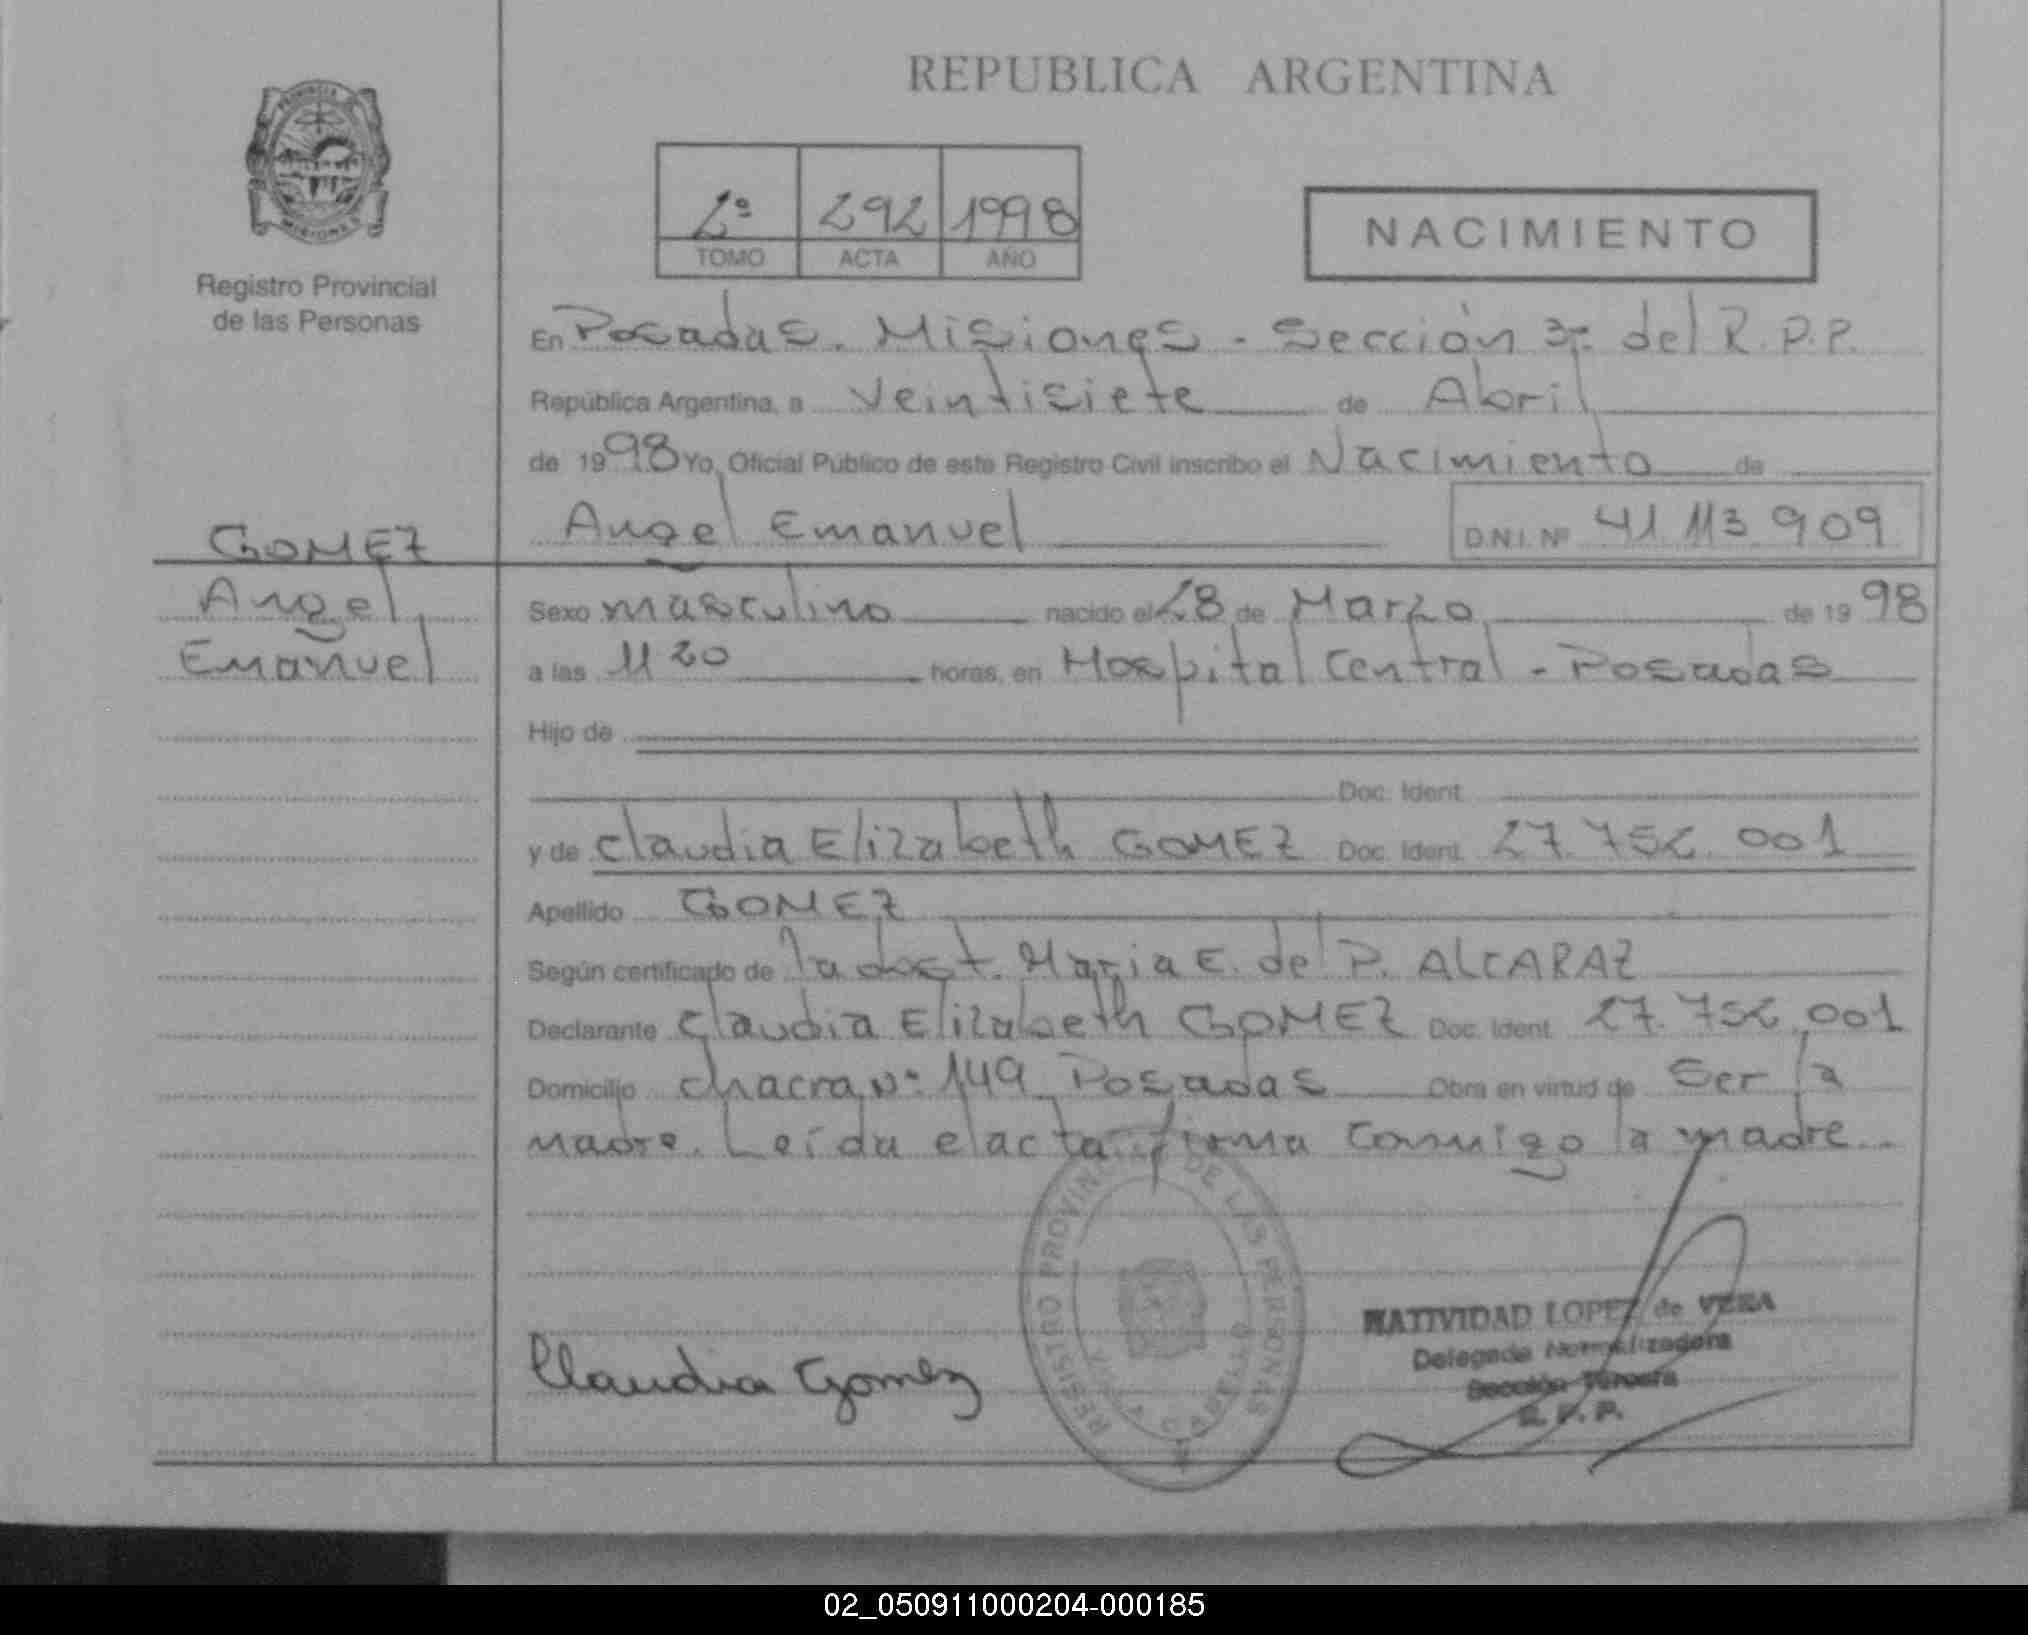 REPUBLICA ARGENTINA
PROVINCIA DE
MISIONES
Registro Provincial
de las Personas
2º 292 1998
TOMO ACTA AÑO
NACIMIENTO
En Posadas. Misiones - Sección 3ª del R.P.P.
República Argentina, a Veintisiete de Abril
de 1998 Yo, Oficial Público de este Registro Civil inscribo el Nacimiento de
Angel Emanuel D.N.I. Nº 41 113 909
GOMEZ
Angel
Emanuel
Sexo masculino nacido el 28 de Marzo de 1998
a las 11 20 horas, en Hospital Central - Posadas
Hijo de
Doc. Ident.
y de Claudia Elizabeth GOMEZ Doc. Ident. 27.752.001
Apellido GOMEZ
Según certificado de la doct. Maria E. del P. ALCARAZ
Declarante Claudia Elizabeth GOMEZ Doc. Ident. 27.752.001
Domicilio chacra Nº 149 Posadas Obra en virtud de Ser la
madre. Leída el acta firma conmigo la madre
REGISTRO PROVINCIAL DE LAS PERSONAS
Claudia Gomez
NATIVIDAD LOPEZ de VERA
Delegada Normalizadora
Sección Tercera
R. P. P.
02_050911000204-000185